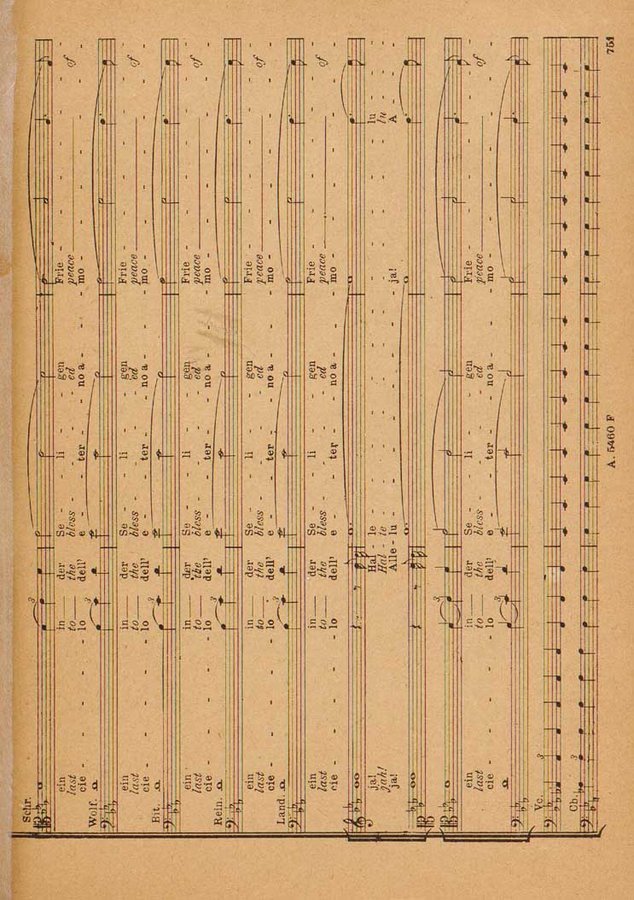 Schr.
ein in der Se li gen Frie
last to the bless ed peace of
cie - lo dell' e - ter - no a - mo -
Wolf.
ein in der Se li gen Frie
last to the bless ed peace of
cie - lo dell' e - ter - no a - mo -
Bit.
ein in der Se li gen Frie
last to the bless ed peace of
cie - lo dell' e - ter - no a - mo -
Rein.
ein in der Se li gen Frie
last to the bless ed peace of
cie - lo dell' e - ter - no a - mo -
Land.
ein in der Se li gen Frie
last to the bless ed peace of
cie - lo dell' e - ter - no a - mo -
ja! Hal - le - lu
jah! Hal - le - lu
ja! Alle - lu - ja! A -
ein in der Se li gen Frie
last to the bless ed peace of
cie - lo dell' e - ter - no a - mo -
Vc.
Cb.
A. 5460 F
751